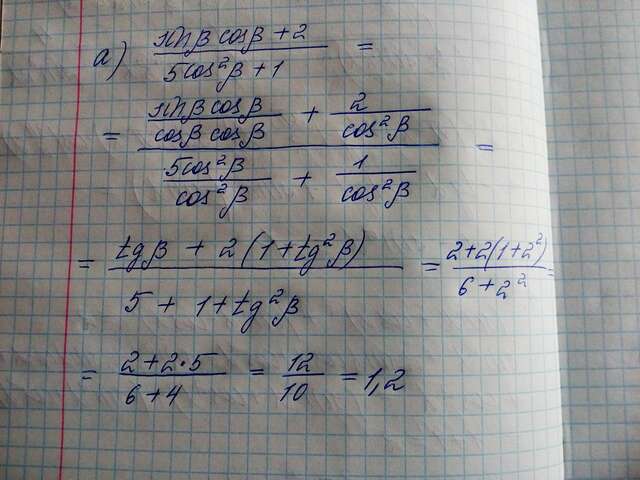 a) (sinβ cosβ + 2) / (5cos²β + 1) =
= (sinβ cosβ / cosβ cosβ + 2 / cos²β) / (5cos²β / cos²β + 1 / cos²β) =
= (tgβ + 2(1+tg²β)) / (5 + 1+tg²β) = (2+2(1+2²)) / (6+2²) =
= (2+2·5) / (6+4) = 12/10 = 1,2